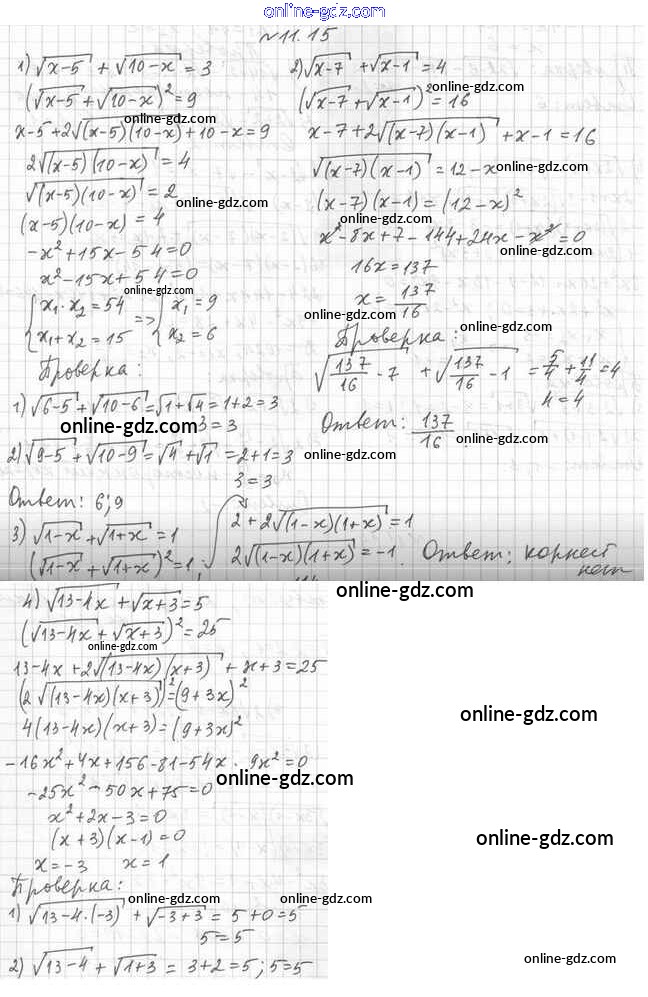 online-gdz.com
№11.15
1) √(x-5) + √(10-x) = 3
(√(x-5) + √(10-x))² = 9
online-gdz.com
x-5+2√((x-5)(10-x))+10-x=9
2√((x-5)(10-x)) = 4
√((x-5)(10-x)) = 2
online-gdz.com
(x-5)(10-x) = 4
-x²+15x-54=0
x²-15x+54=0
online-gdz.com
{x₁·x₂=54 => {x₁=9
{x₁+x₂=15 {x₂=6
Проверка:
1) √(6-5)+√(10-6)=√1+√4=1+2=3
online-gdz.com 3=3
2) √(9-5)+√(10-9)=√4+√1=2+1=3
3=3
Ответ: 6;9
2) √(x-7) + √(x-1) = 4
online-gdz.com
(√(x-7) + √(x-1))² = 16
x-7+2√((x-7)(x-1)) + x-1=16
√((x-7)(x-1)) = 12-x
online-gdz.com
(x-7)(x-1) = (12-x)²
online-gdz.com
x²-8x+7-144+24x-x²=0
online-gdz.com
16x=137
x = 137/16
online-gdz.com
online-gdz.com
Проверка:
√(137/16 - 7) + √(137/16 - 1) = 5/4 + 11/4 = 4
4=4
Ответ: 137/16
online-gdz.com
3) √(1-x) + √(1+x) = 1
(√(1-x) + √(1+x))² = 1;
2+2√((1-x)(1+x)) = 1
2√((1-x)(1+x)) = -1.
Ответ: корней
нет
online-gdz.com
4) √(13-4x) + √(x+3) = 5
(√(13-4x) + √(x+3))² = 25
online-gdz.com
13-4x+2√((13-4x)(x+3)) + x+3=25
(2√((13-4x)(x+3)))²=(9+3x)²
online-gdz.com
4(13-4x)(x+3)=(9+3x)²
-16x²+4x+156-81-54x-9x²=0
online-gdz.com
-25x²-50x+75=0
x²+2x-3=0
(x+3)(x-1)=0
online-gdz.com
x=-3 x=1
Проверка:
online-gdz.com
online-gdz.com
1) √(13-4·(-3)) + √(-3+3) = 5+0=5
5=5
2) √(13-4) + √(1+3) = 3+2=5; 5=5
online-gdz.com